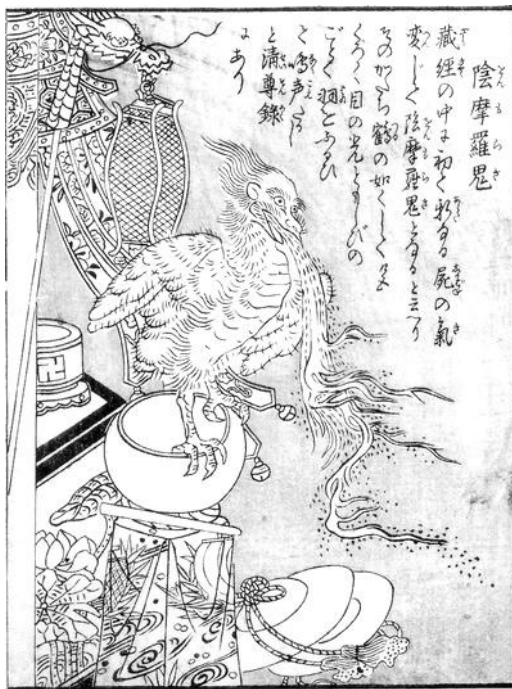 陰摩羅鬼
藏經の中に初て新なる屍の氣
変じて陰摩羅鬼となると云り
そのかたち鶴の如くして色
くろく目の光ともしびの
ごとく羽をふるひ
て鳴声たかし
と清尊錄
にあり